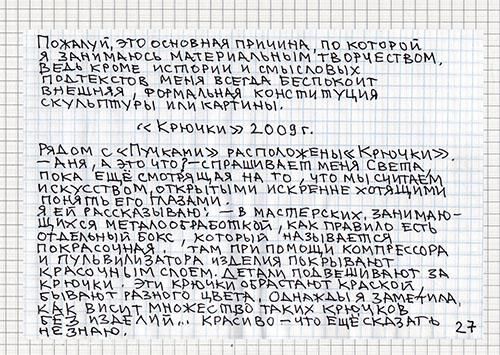 Пожалуй, это основная причина, по которой
я занимаюсь материальным творчеством.
Ведь кроме истории и смысловых
подтекстов меня всегда беспокоит
внешняя, формальная конституция
скульптуры или картины.
«Крючки» 2009 г.
Рядом с «Пучками» расположены «Крючки».
– Аня, а это что? – спрашивает меня Света,
пока ещё смотрящая на то, что мы считаем
искусством, открытыми искренне хотящими
понять его глазами.
Я ей рассказываю: – в мастерских, занимаю-
щихся металообработкой, как правило есть
отдельный бокс, который называется
покрасочная. Там при помощи компрессора
и пульвилизатора изделия покрывают
красочным слоем. Детали подвешивают за
крючки. Эти крючки обрастают краской,
бывают разного цвета. Однажды я заметила,
как висит множество таких крючков
без изделий... красиво – что ещё сказать
не знаю.
27